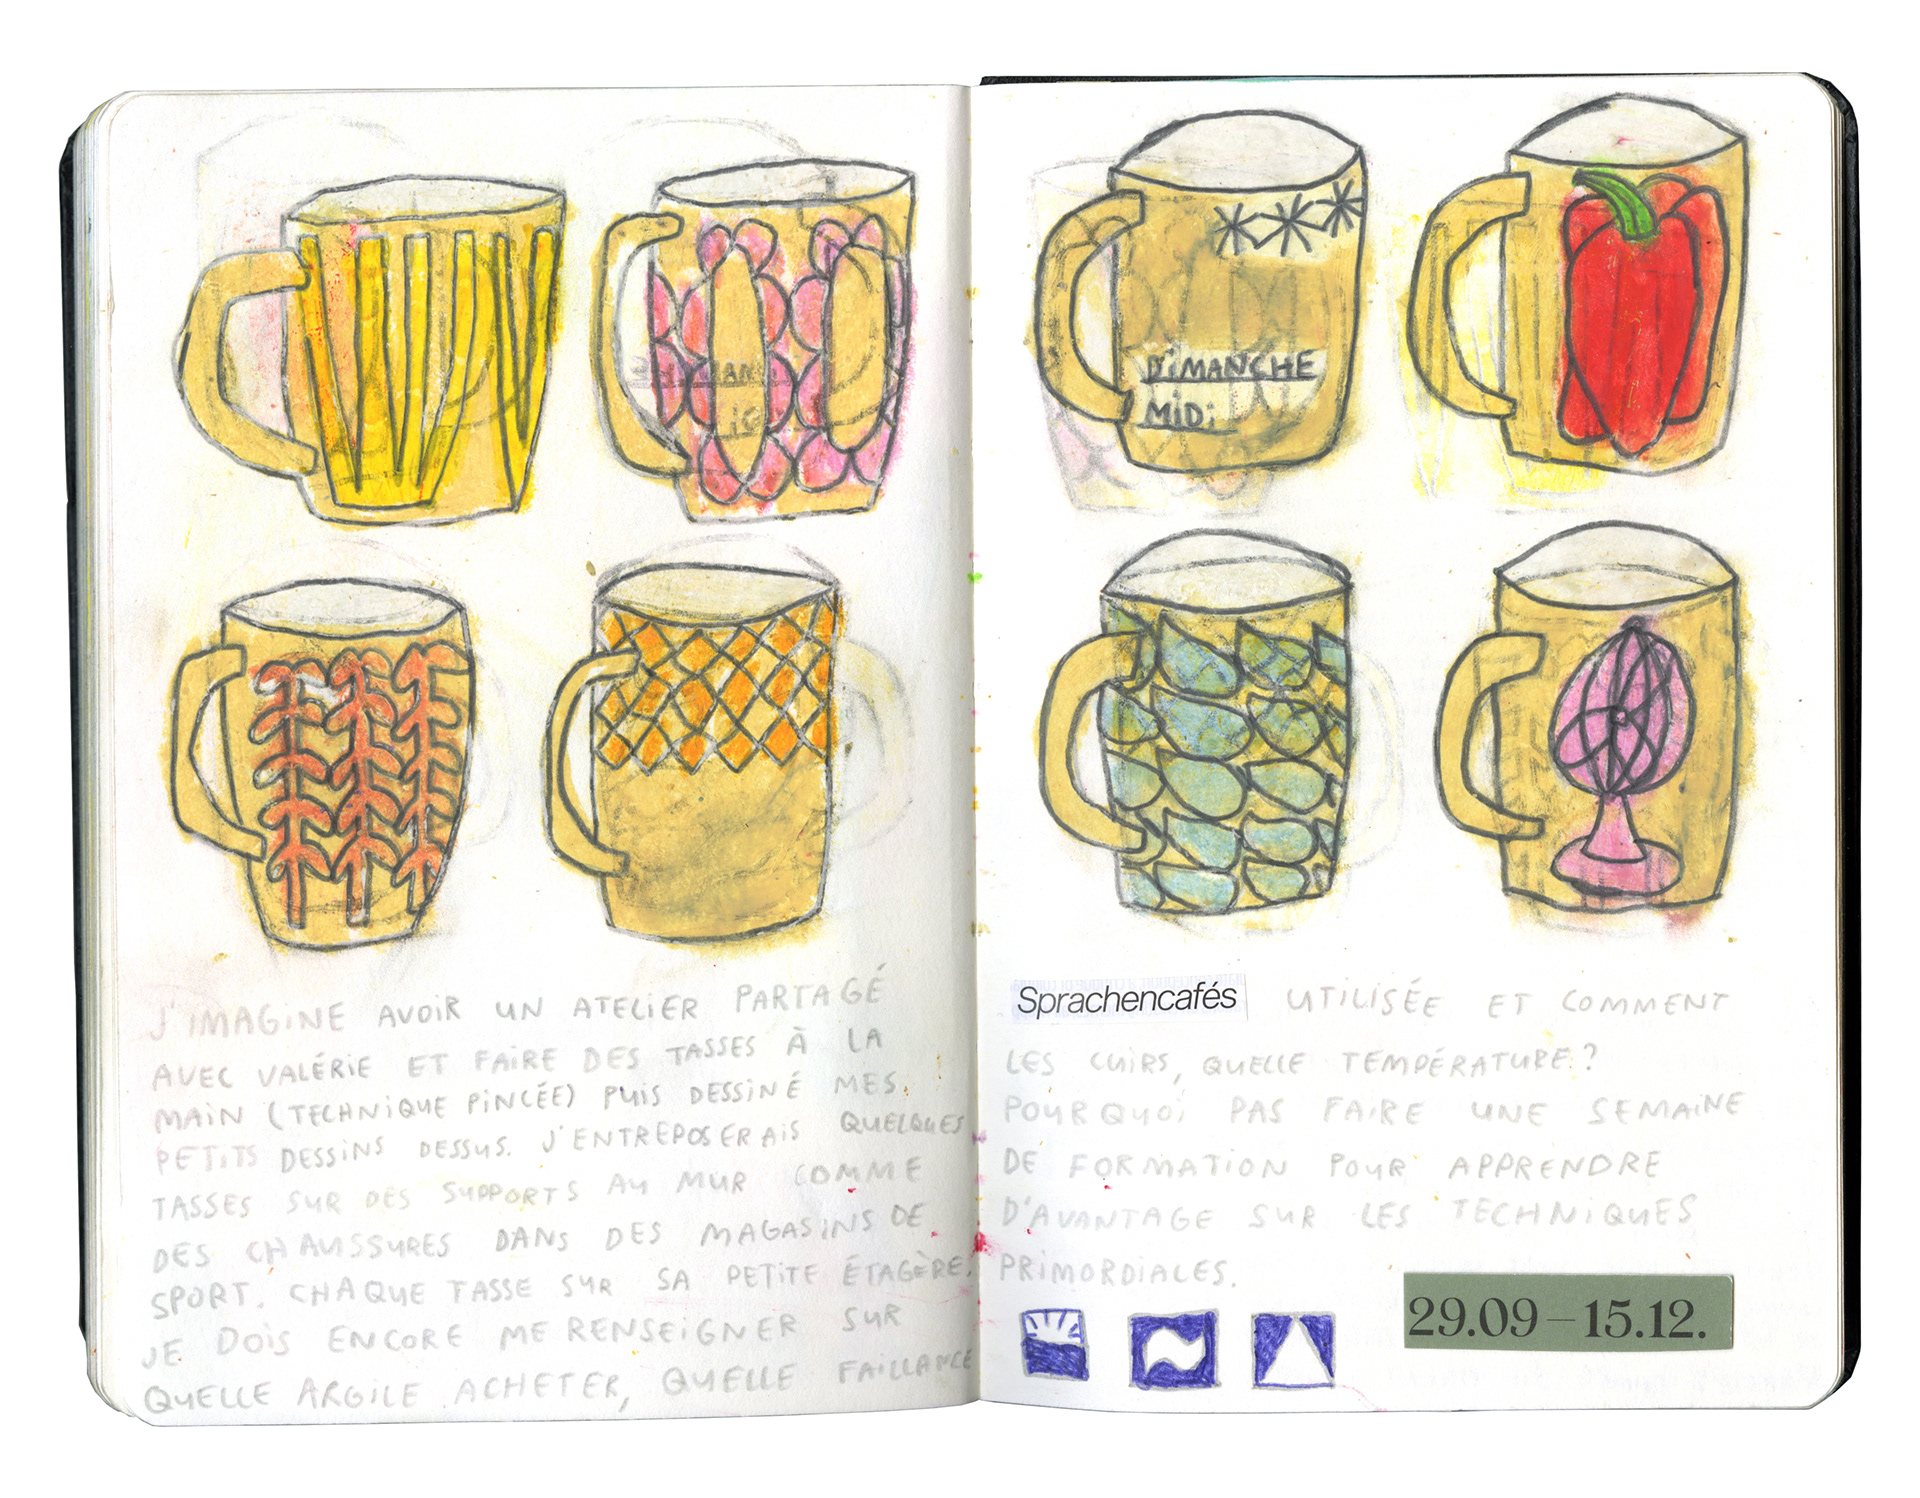 DIMANCHE
MIDI
J'IMAGINE AVOIR UN ATELIER PARTAGÉ
AVEC VALÉRIE ET FAIRE DES TASSES À LA
MAIN (TECHNIQUE PINCÉE) PUIS DESSINÉ MES
PETITS DESSINS DESSUS. J'ENTREPOSERAIS QUELQUES
TASSES SUR DES SUPPORTS AU MUR COMME
DES CHAUSSURES DANS DES MAGASINS DE
SPORT. CHAQUE TASSE SUR SA PETITE ÉTAGÈRE.
JE DOIS ENCORE ME RENSEIGNER SUR
QUELLE ARGILE ACHETER, QUELLE FAILLANCE
Sprachencafés UTILISÉE ET COMMENT
LES CUIRS, QUELLE TEMPÉRATURE?
POURQUOI PAS FAIRE UNE SEMAINE
DE FORMATION POUR APPRENDRE
D'AVANTAGE SUR LES TECHNIQUES
PRIMORDIALES.
29.09 – 15.12.